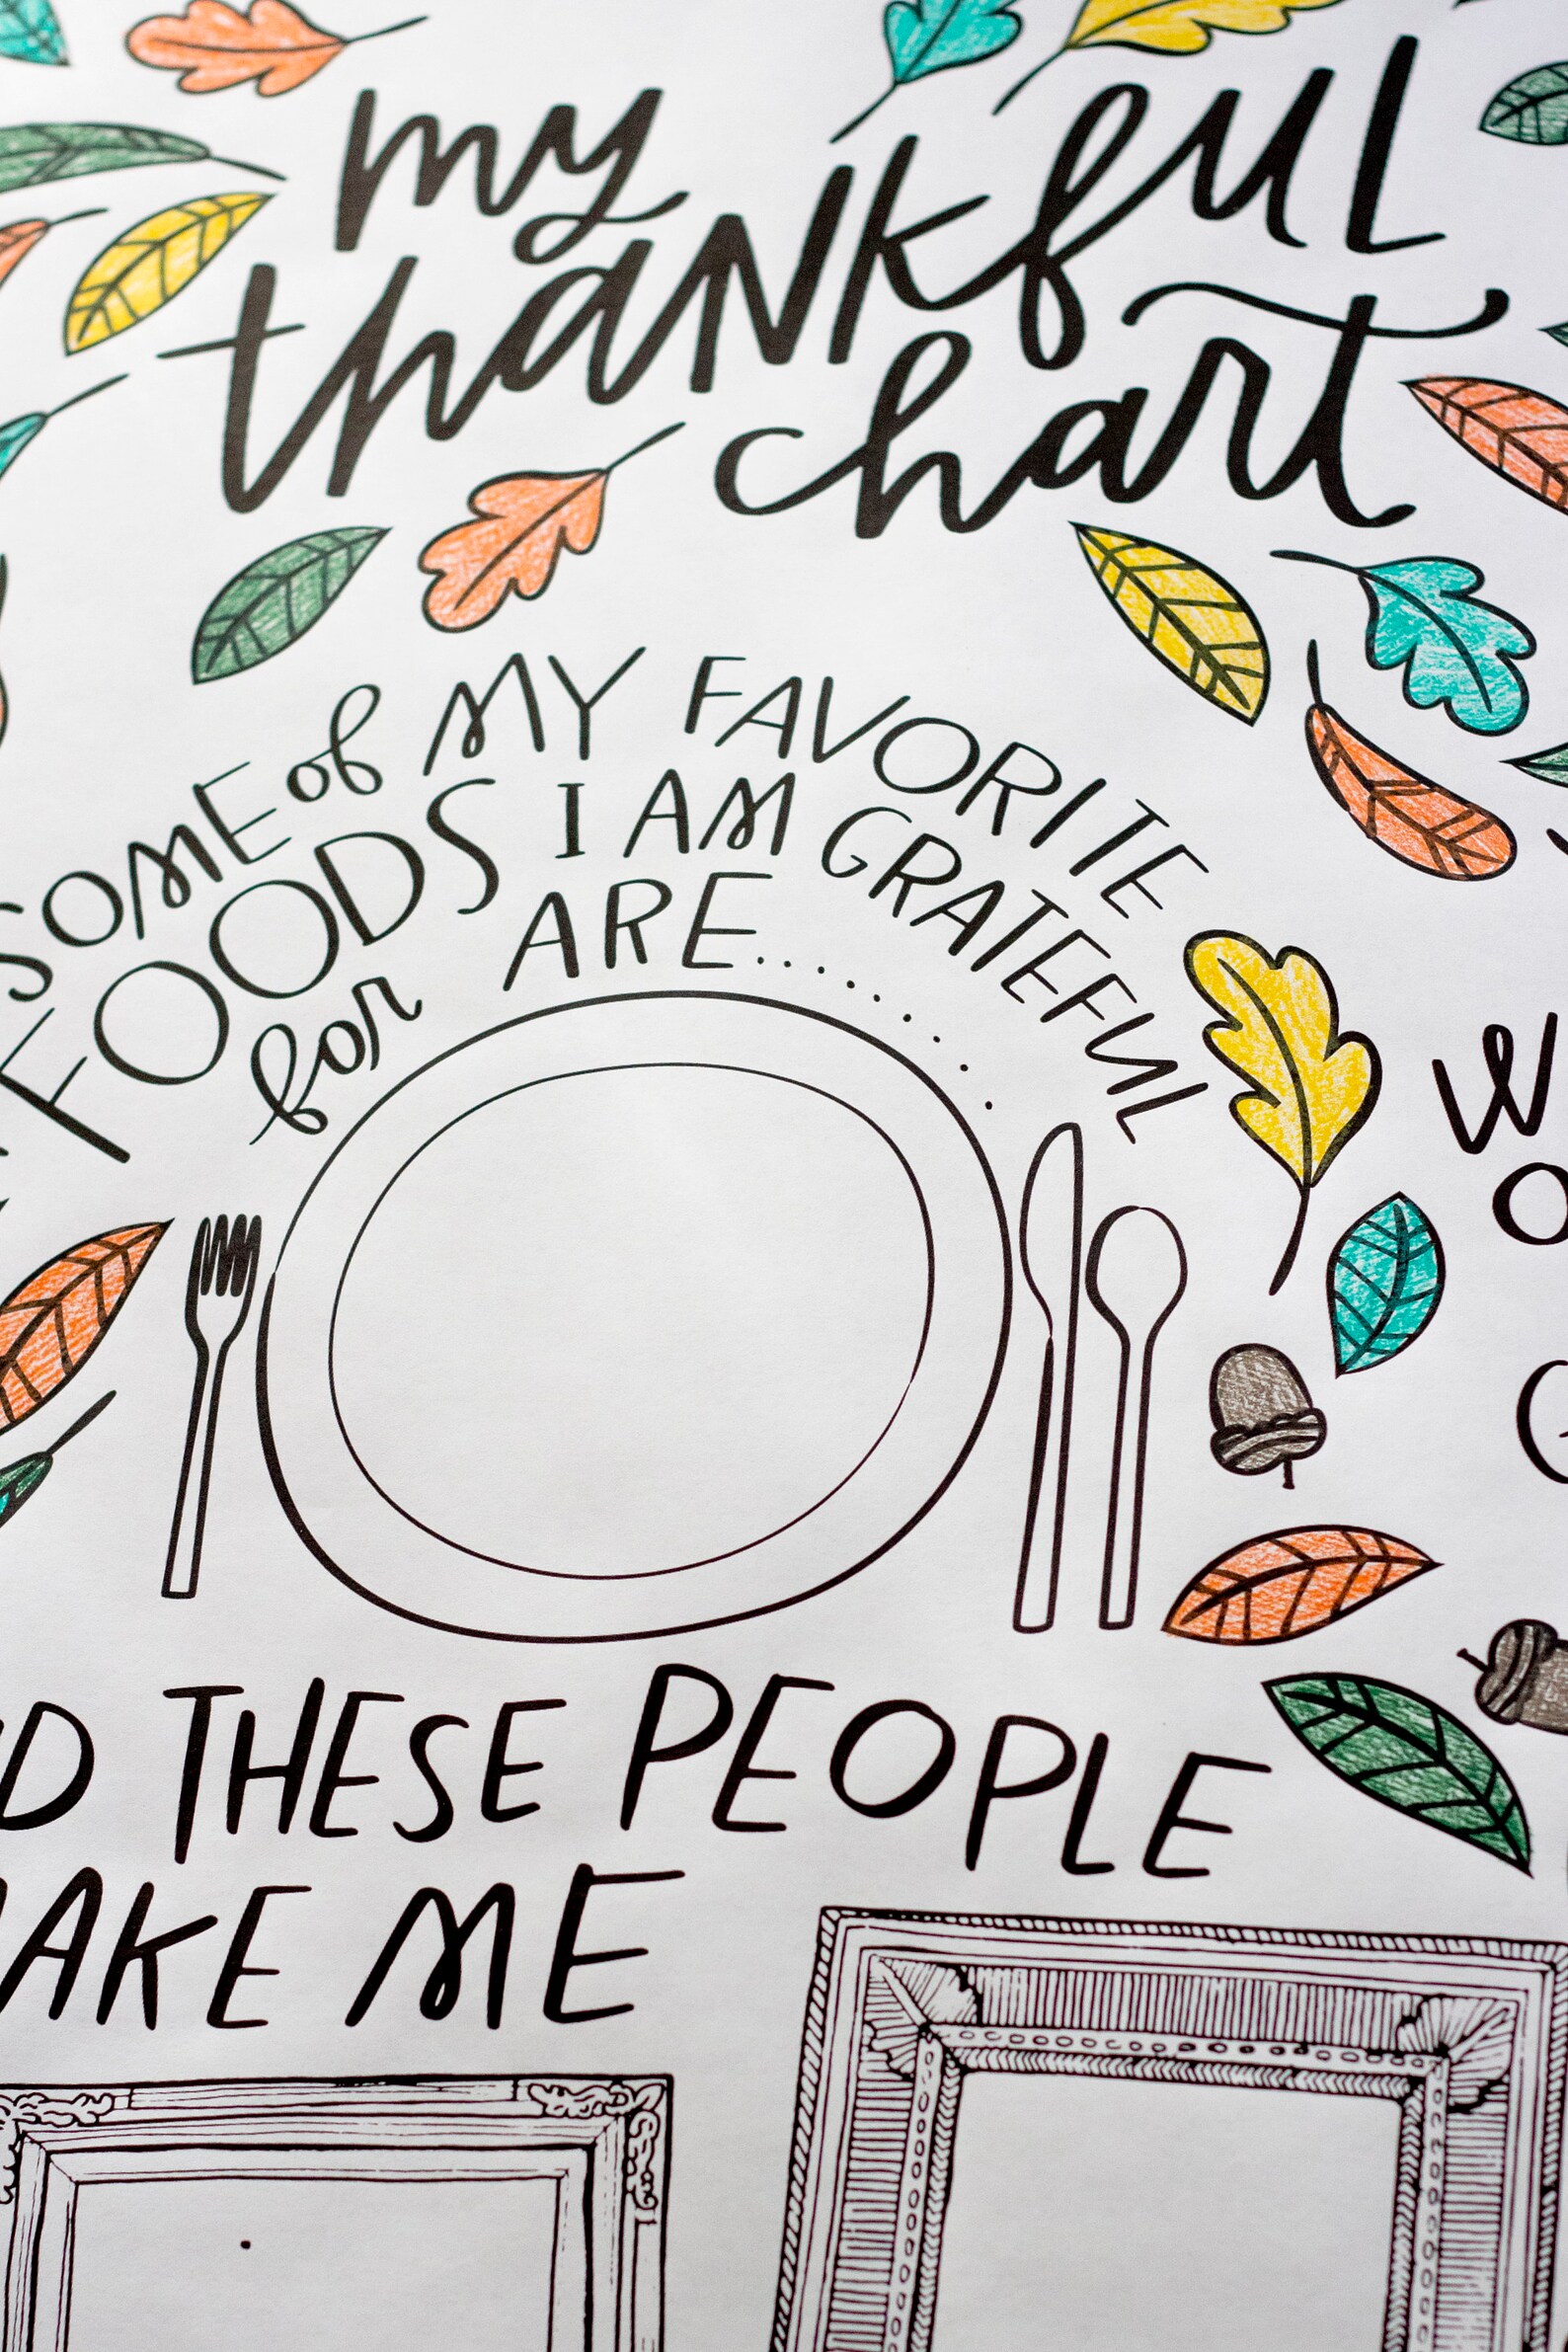 my
thankful
chart
SOME of MY FAVORITE
FOODS I AM GRATEFUL
for ARE.........
THESE PEOPLE
ME